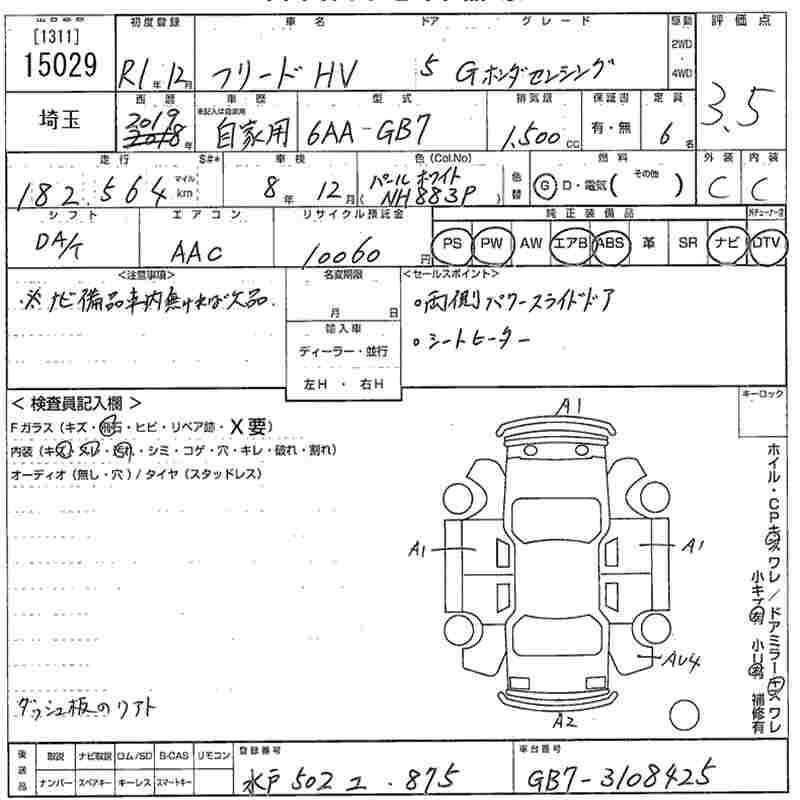 [1311]
15029
初度登録
R1年12月
車名
フリードHV
ドア
5
グレード
Gホンダセンシング
駆動
2WD
・
4WD
評価点
3.5
埼玉
西暦
2019
2018年
車歴
未記入は自家用
自家用
型式
6AA-GB7
排気量
1,500cc
保証書
有・無
定員
6名
走行
182,564
マイル
km
S#*
車検
8年12月
色(Col.No)
パールホワイト
(NH883P)
色替
燃料
G D・電気(その他)
外装
C
内装
C
シフト
DA/T
エアコン
AAC
リサイクル預託金
10060円
純正装備品
PS PW AW エアB ABS 革 SR ナビ DTV
<注意事項>
※ナビ備品車内無ければ欠品.
名変期限
月 日
輸入車
ディーラー・並行
左H・右H
<セールスポイント>
○両側パワースライドドア
○シートヒーター
<検査員記入欄>
Fガラス(キズ・飛石・ヒビ・リペア跡・X要)
内装(キズ・スレ・汚れ・シミ・コゲ・穴・キレ・破れ・割れ)
オーディオ(無し・穴)/タイヤ(スタッドレス)
ダッシュ板のリアト
キーロック
A1
A1
A1
AU4
A2
ホイル・CPキズワレ/ドアミラーキズワレ
小キズ有 小U有 補修有
後装品
取説 ナビ取説 ロム/SD B-CAS リモコン
ナンバー スペアキー キーレス スマートキー
登録番号
水戸502ユ・875
車台番号
GB7-3108425